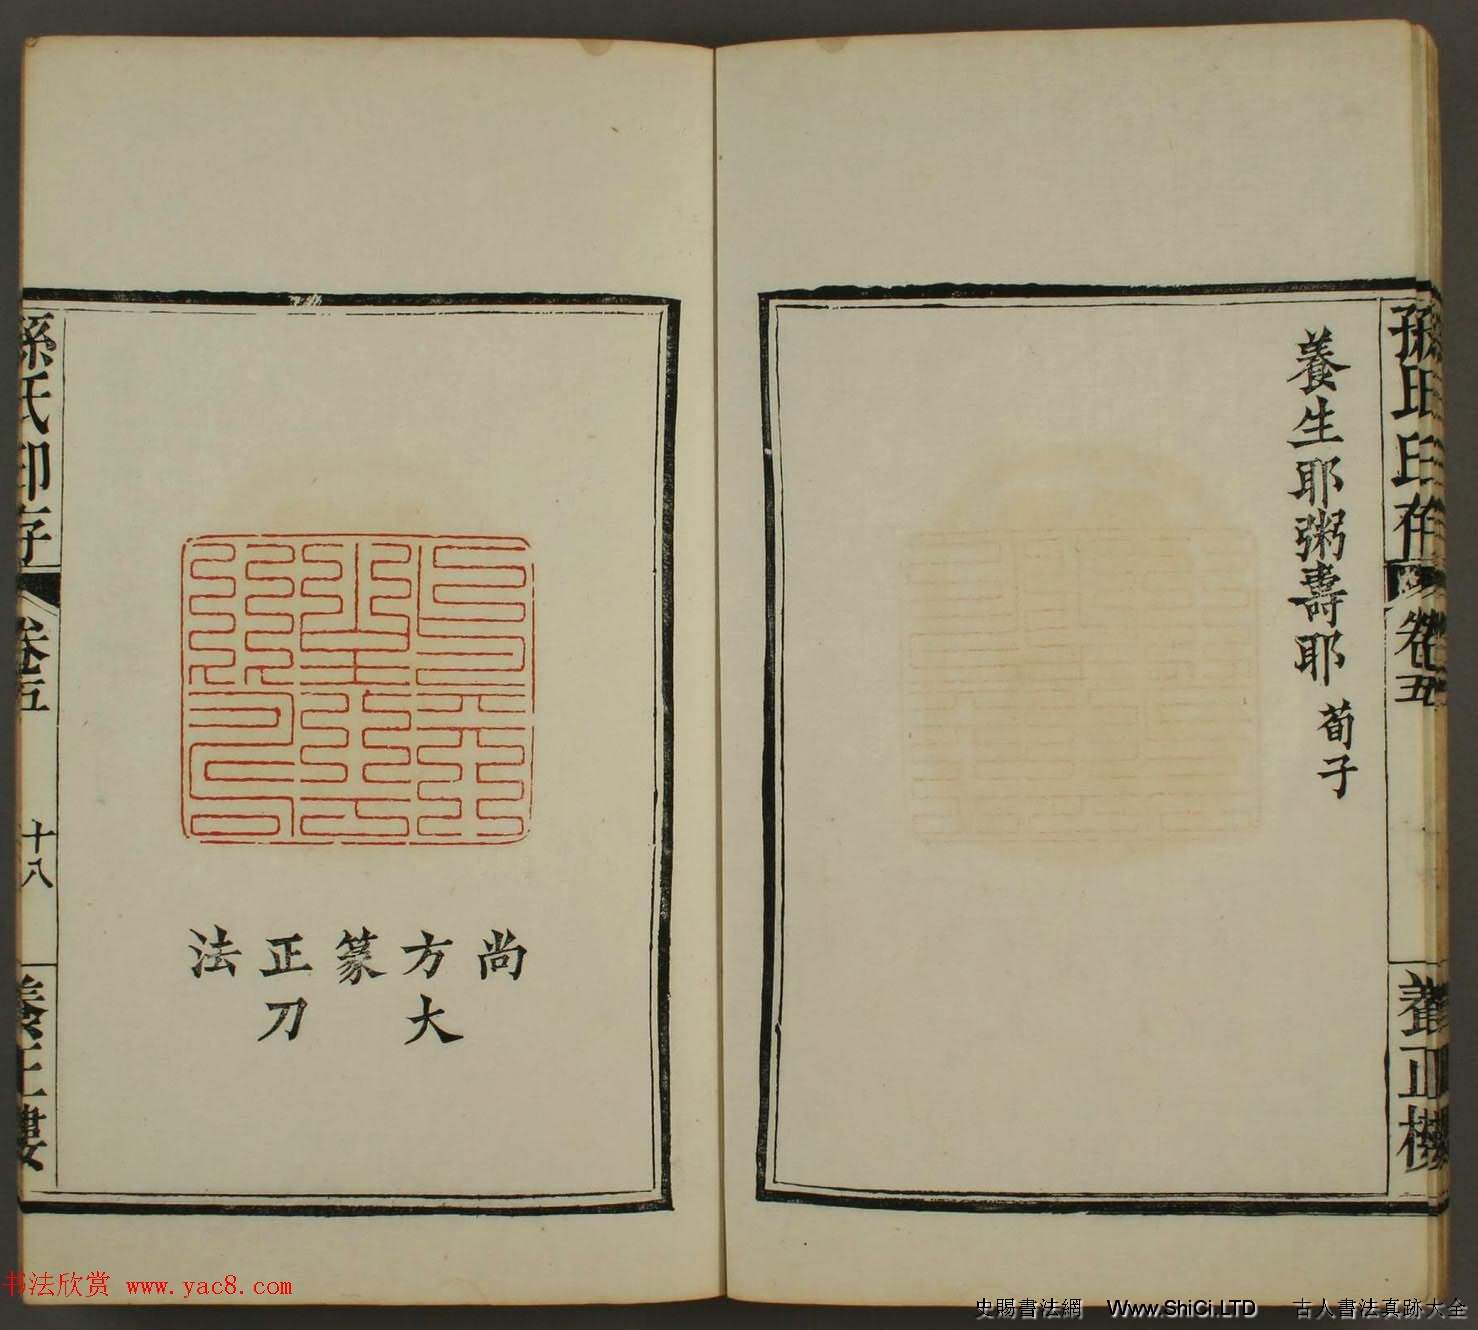 孫氏印存
卷五
養正樓
養生耶粥壽耶 荀子
尚
方大
篆
正刀
法
孫氏印存
卷五
十八
養正樓
书法欣赏 www.yac8.com
史賜書法網 Www.ShiCi.LTD 古人書法真跡大全